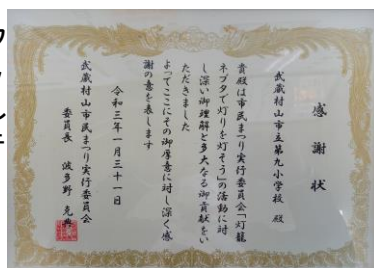 感謝状
武蔵村山市立第九小学校 殿
貴殿は市民まつり実行委員会「灯籠
ネプタで灯りを灯そう」の活動に対
し深い御理解と多大なる御貢献をい
ただきました
よってここにその御厚意に対し深く感
謝の意を表します
令和三年一月三十一日
武蔵村山市民まつり実行委員会
委員長 波多野